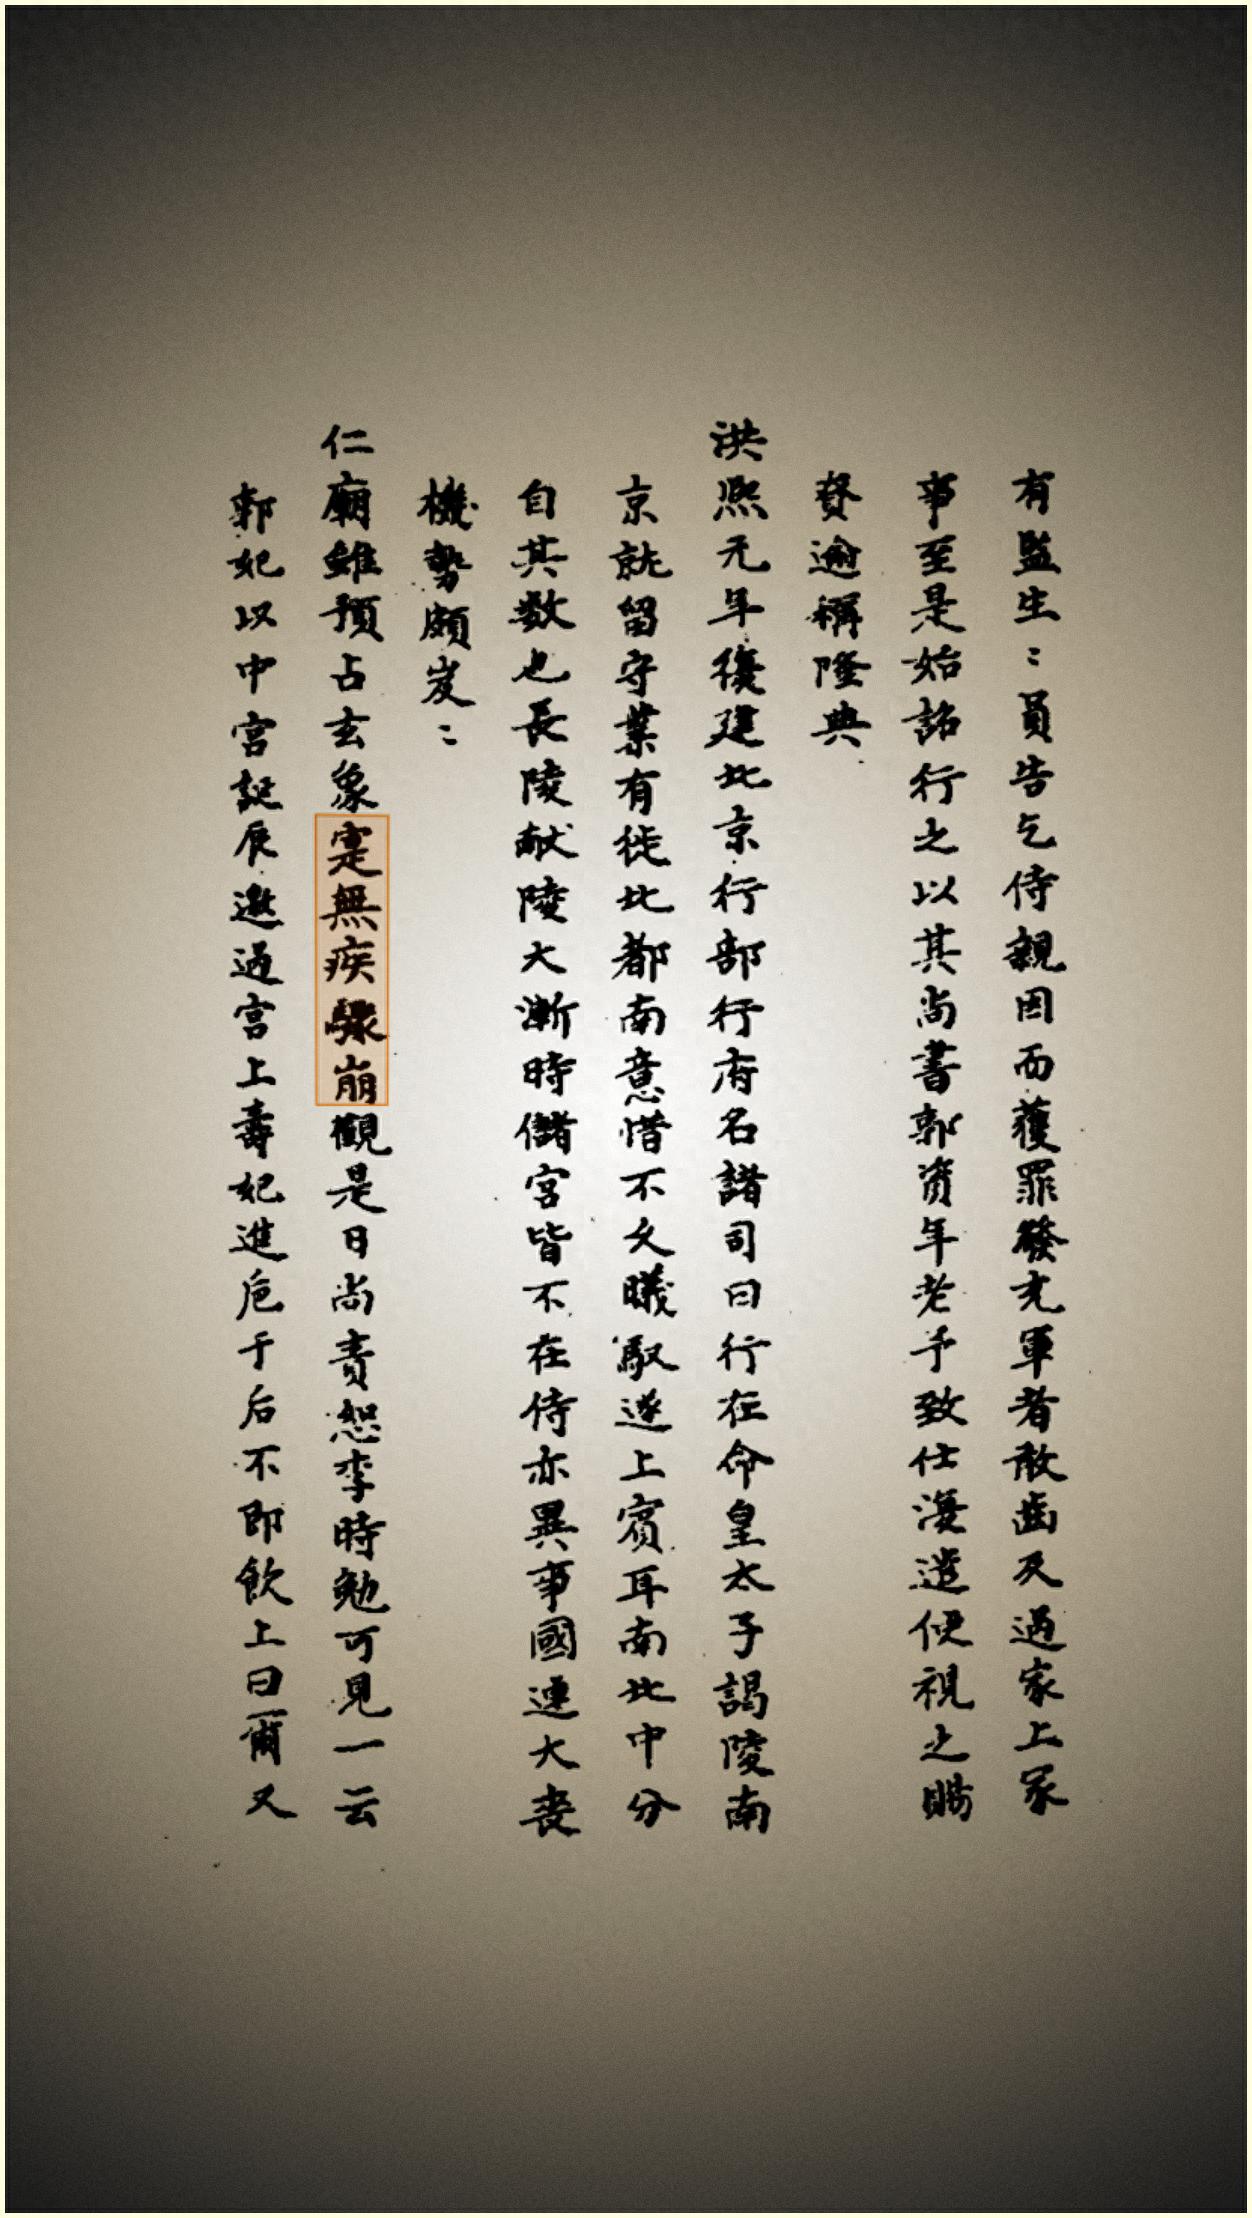 有監生〻員告乞侍親因而獲罪發充軍者敢齒及過家上冢
事至是始詔行之以其尚書郭資年老予致仕漫遣使視之賜
賚逾稱隆典
洪熈元年復建北京行部行府名諸司曰行在命皇太子謁陵南
京就留守業有徙北都南意惜不久曦馭遂上賓耳南北中分
自其数也長陵献陵大漸時儲宮皆不在侍亦異事國連大喪
機勢頗岌〻
仁廟雖預占玄象寔無疾驟崩觀是日尚責恕李時勉可見一云
郭妃以中宮誕辰邀過宮上壽妃進卮于后不即飲上曰爾又